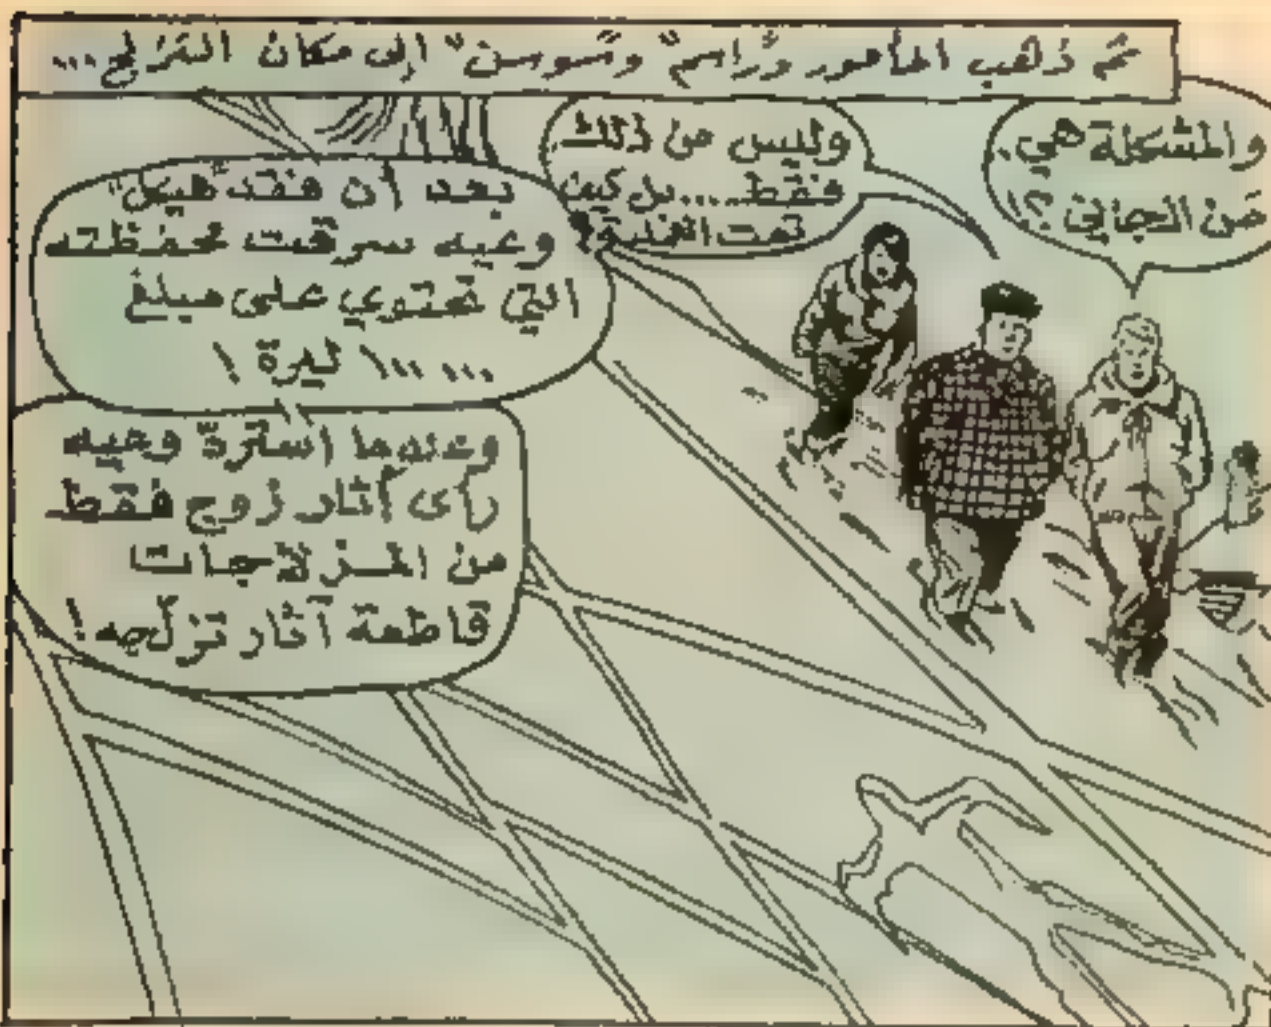 ثم ذهب المأمور و"راسم" و"سوسن" إلى مكان التزلج...
والمشكلة هي،
مَن الجاني؟!
وليس من ذلك
فقط.... بل كيف
تمت العملية؟
بعد أن فقد "هيكل"
وعيه سرقت محفظته
التي تحتوي على مبلغ
١٠٠,٠٠٠ ليرة!
وعندما استردّ وعيه
رأى آثار زوج فقط
من المزلاجات
قاطعة آثار تزلّجه!